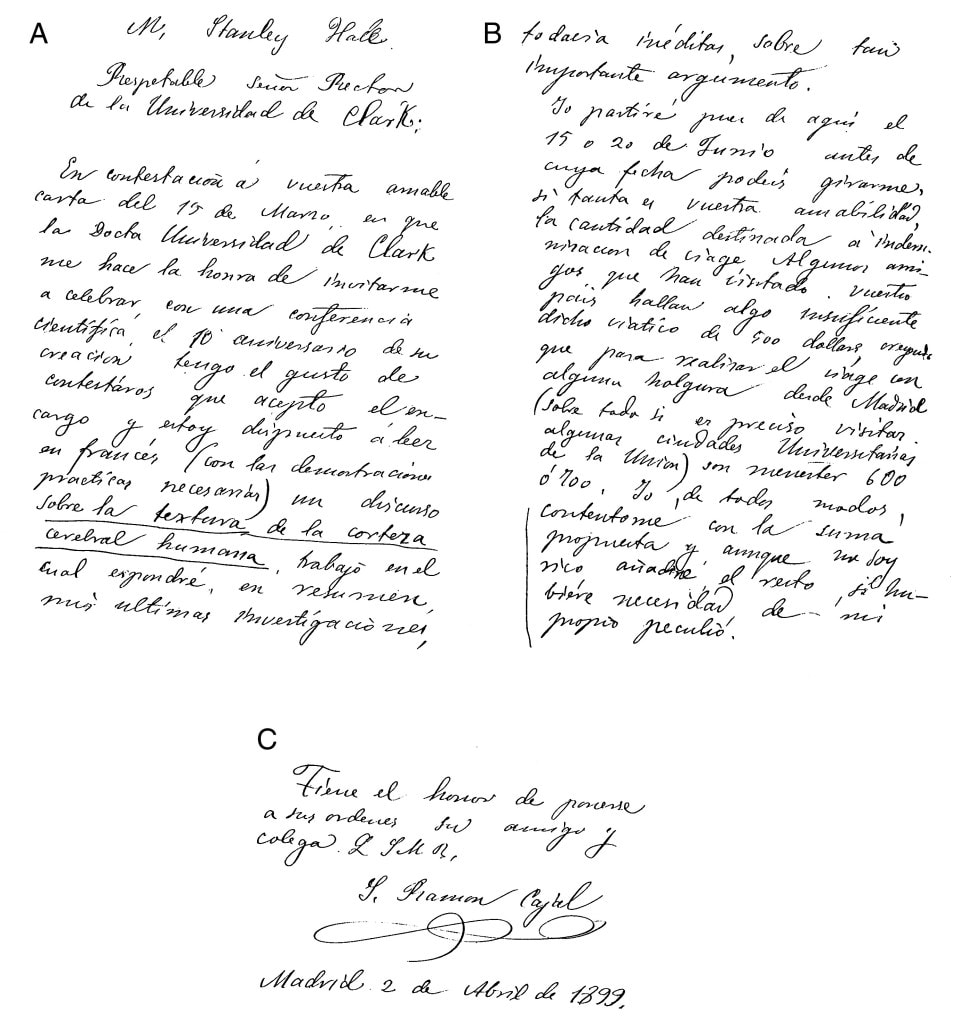 A
M, Stanley Hall.
Respetable señor Rector
de la Universidad de Clark:
En contestación á vuestra amable
carta del 15 de Marzo, en que
la Docta Universidad de Clark
me hace la honra de invitarme
a celebrar, con una conferencia
científica, el 10 aniversario de su
creacion tengo el gusto de
contestáros que acepto el en-
cargo y estoy dispuesto á leer
en francés (con las demostraciones
practicas necesarias) un discurso
sobre la textura de la corteza
cerebral humana, trabajo en el
cual expondré, en resumen,
mis ultimas investigaciones,
B
todavia inéditas, sobre tan
importante argumento.
Yo partiré pues de aqui el
15 o 20 de Junio antes de
cuya fecha podeis girarme,
si tanta es vuestra amabilidad,
la cantidad destinada a indem-
nizacion de viage. Algunos ami-
gos que han visitado vuestro
pais hallan algo insuficiente
dicho viatico de 500 dollars, creyendo
que para realizar el viage con
alguna holgura desde Madrid
(sobre todo si es preciso visitar
algunas ciudades Universitarias
de la Union) son menester 600
ó 700. Yo, de todos modos,
contentome con la suma
propuesta y aunque no soy
rico añadiré el resto, si hu-
biére necesidad de mi
propio peculió.
C
Tiene el honor de ponerse
a sus ordenes su amigo y
colega. Q S M B,
S. Ramon Cajal
Madrid 2 de Abril de 1899.